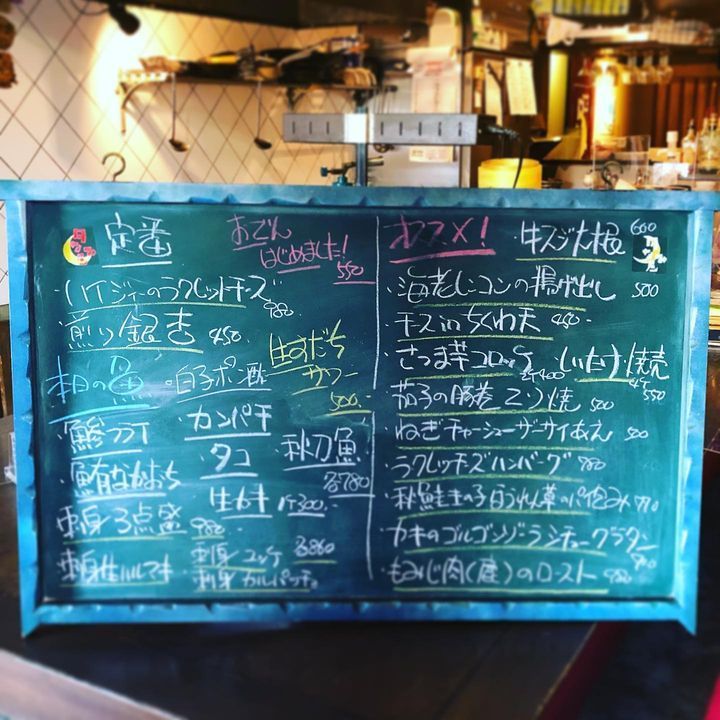 定番
おでん
はじめました!
550
・ハイジィーのラクレットチーズ 980
・煎り銀杏 450
生すだち
サワー
500.-
本日の魚 ・白子ポン酢
・鯵フライ
・カンパチ
・秋刀魚
・タコ
各780
生カキ 1ケ300.-
・刺身3点盛 980
・刺身生ハルマキ
・刺身ユッケ 各860
・刺身カルパッチョ
オススメ! 牛スジ大根 600
・海老レンコンの揚げ出し 500
・チーズinちくわ天 450-
・さつま芋コロッケ 2ケ400
・しいたけ焼売 4ケ550
・茄子の豚巻こう焼 500
・ねぎチャーシューザーサイあえ 500
・ラクレットチーズハンバーグ 980
・秋鮭きの子ほうれん草のパイ包み
・カキのゴルゴンゾーラシチューグラタン
・もみじ肉(鹿)のロースト 980